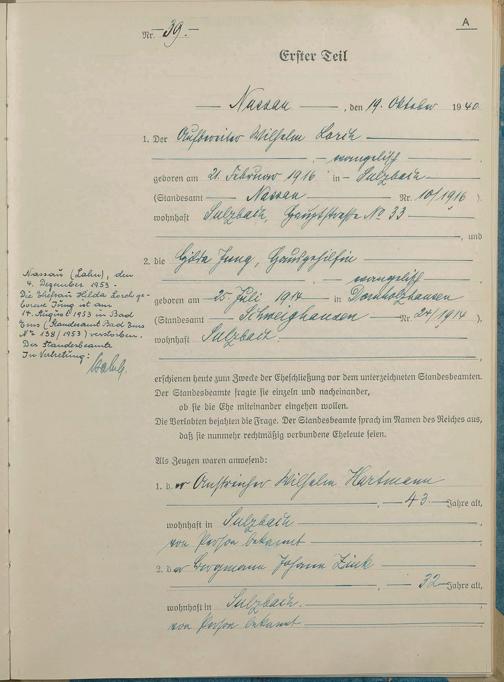 A
Nr. 39.
Erster Teil
Nassau, den 19. Oktober 1940.
1. Der Wilhelm Lorch
evangelisch
geboren am 21. Februar 1916 in Sulzbach
(Standesamt Nassau Nr. 10/1916).
wohnhaft Sulzbach, Hauptstraße No 33
, und
2. die Hilda Jung, Hausgehilfin
evangelisch
geboren am 25. Juli 1914 in Dornholzhausen
(Standesamt Schweighausen Nr. 24/1914).
wohnhaft Sulzbach.
Nassau (Lahn), den
4. Dezember 1953.
Die Ehefrau Hilda Lorch ge-
borene Jung ist am
14. August 1953 in Bad
Ems (Standesamt Bad Ems
No 138/1953) verstorben.
Der Standesbeamte
In Vertretung:
erschienen heute zum Zwecke der Eheschließung vor dem unterzeichneten Standesbeamten.
Der Standesbeamte fragte sie einzeln und nacheinander,
ob sie die Ehe miteinander eingehen wollen.
Die Verlobten bejahten die Frage. Der Standesbeamte sprach im Namen des Reiches aus,
daß sie nunmehr rechtmäßig verbundene Eheleute seien.
Als Zeugen waren anwesend:
1. der Anstreicher Wilhelm Hartmann
43 Jahre alt,
wohnhaft in Sulzbach
von Person bekannt
2. der Bergmann Johann Zink
32 Jahre alt,
wohnhaft in Sulzbach.
von Person bekannt